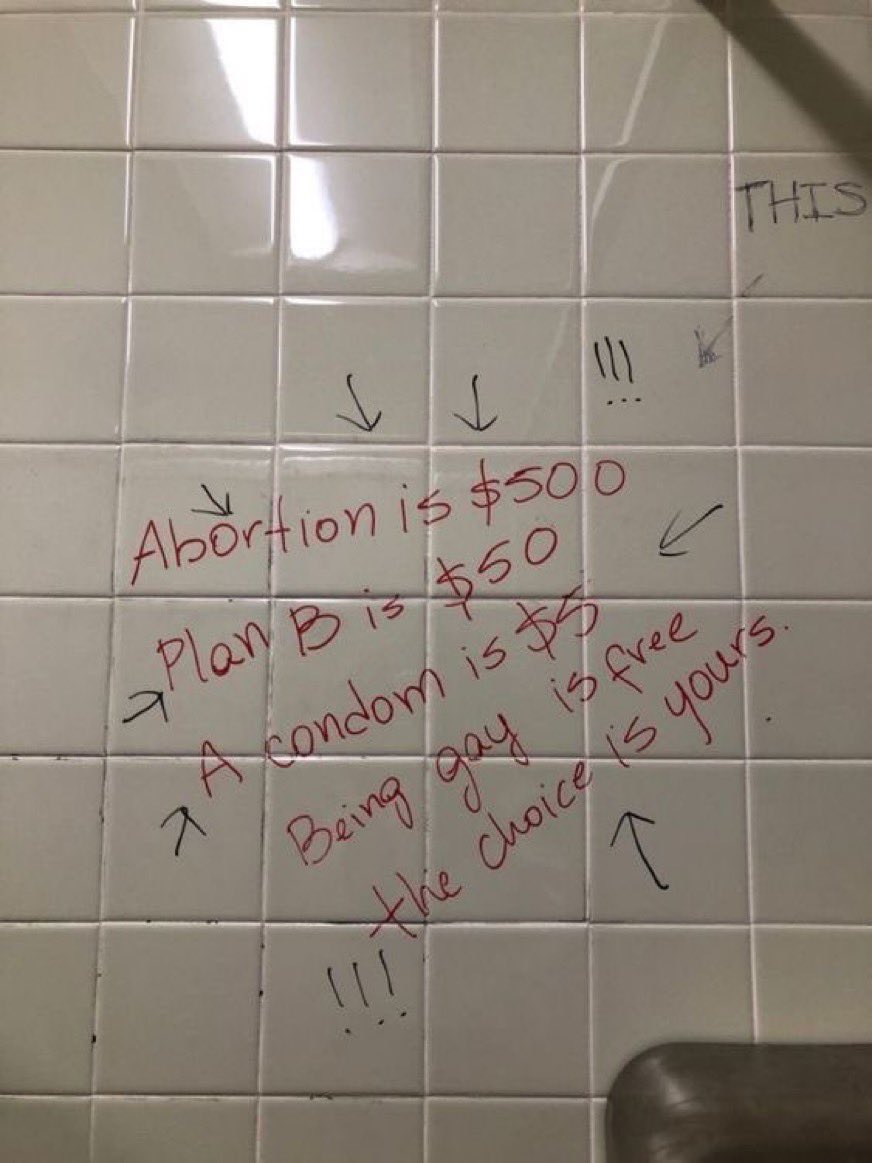 THIS
!!!
Abortion is $500
Plan B is $50
A condom is $5
Being gay is free
the choice is yours.
!!!